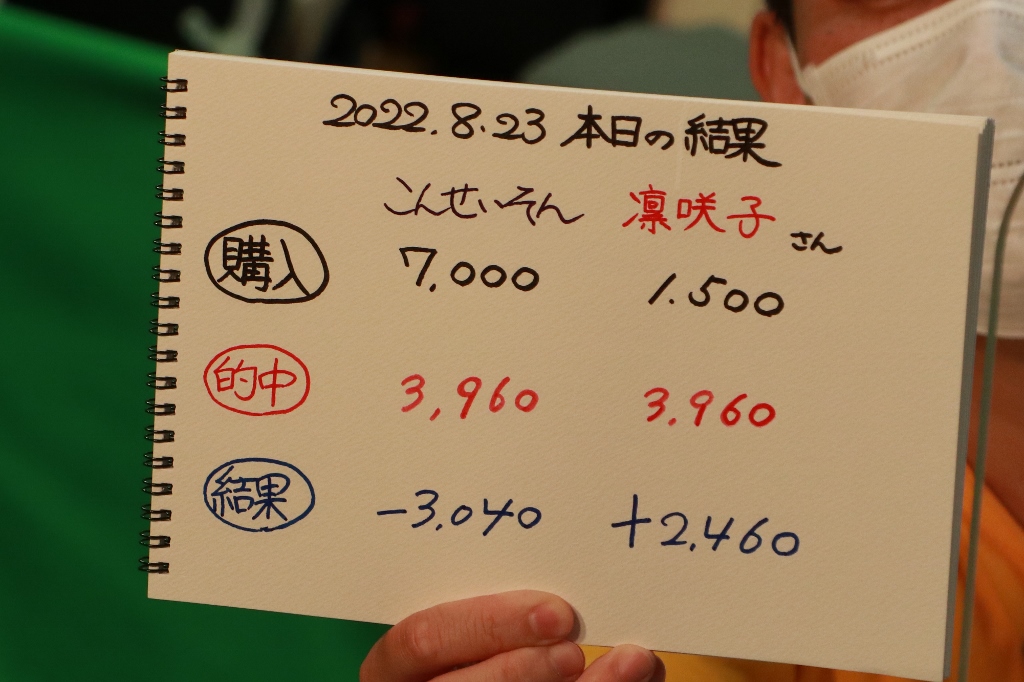 2022.8.23 本日の結果
こんせいそん 凛咲子さん
購入 7,000 1.500
的中 3,960 3.960
結果 -3,040 +2,460